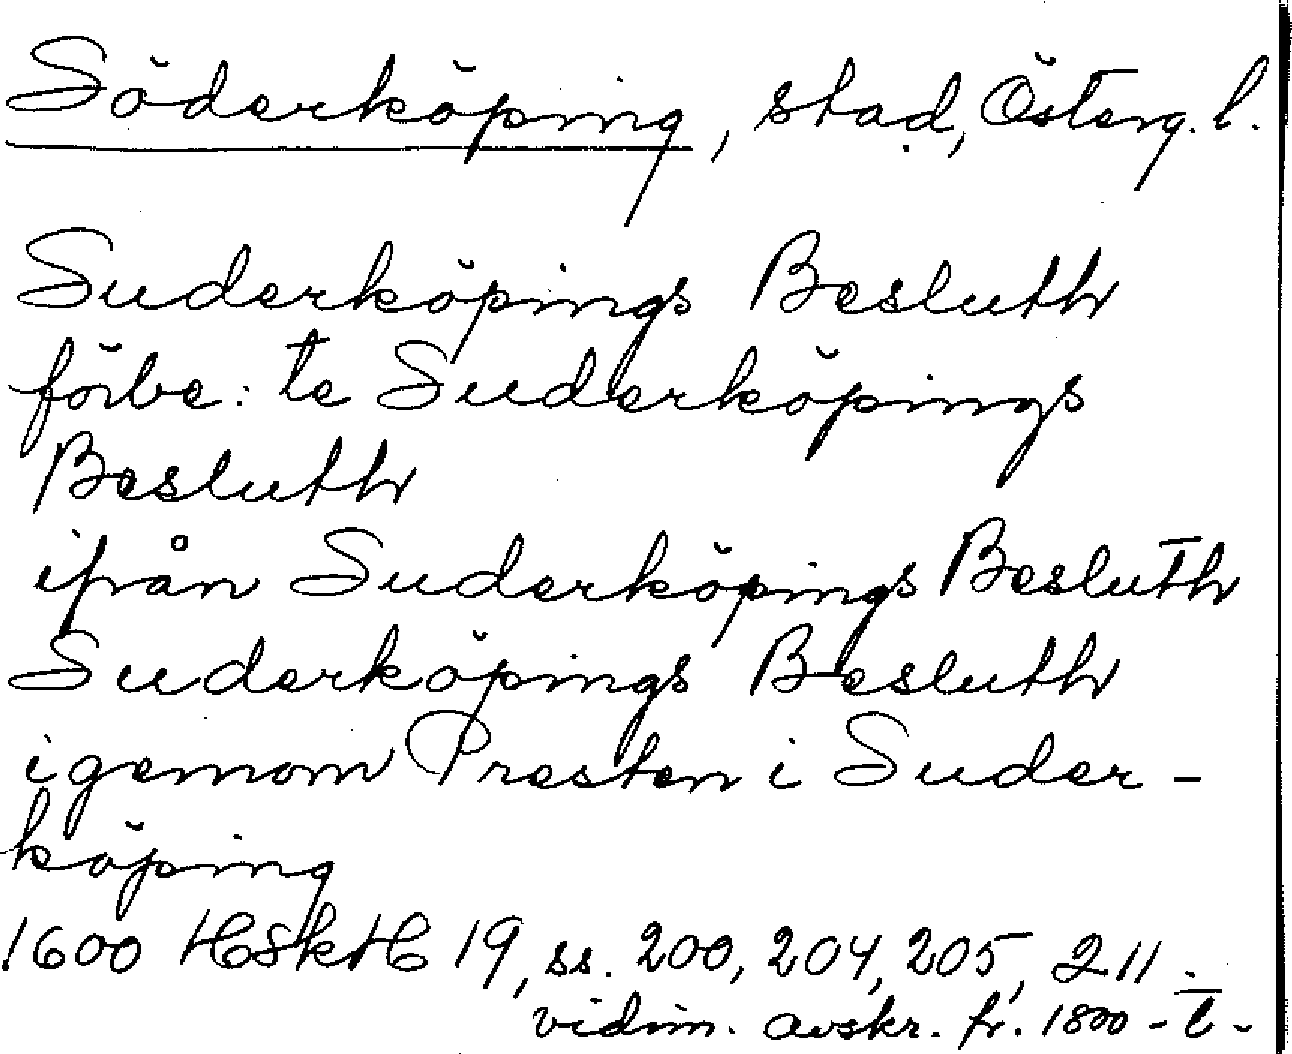 Söderköping, stad, Österg. l.
Suderköpings Besluth
förbe: te Suderköpings
Besluth
ifrån Suderköpings Besluth
Suderköpings Besluth
igenom Presten i Suder-
köping
1600 HSkH 19, ss. 200, 204, 205, 211.
vidim. avskr. fr. 1800-t-